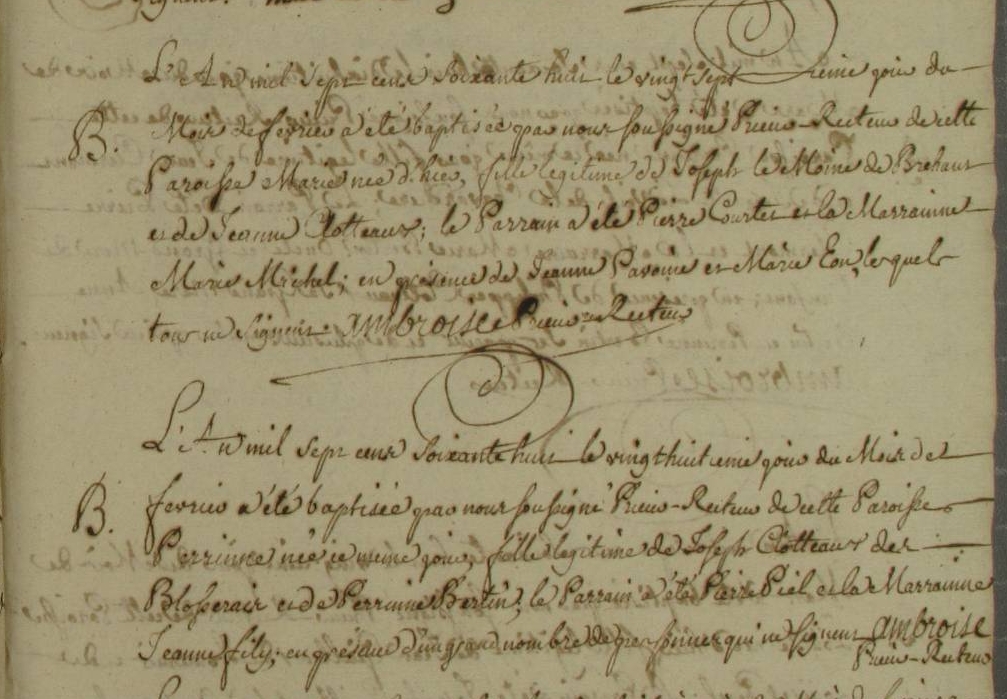 L'An mil sept cent soixante huit le vingt septieme jour du
B. Mois de fevrier a été baptisée par nous soussigné Prieur-Recteur de cette
Paroisse Marie née d'hier, fille legitime de Joseph le Moine de Brehaut
et de Jeanne Clotteaux; le Parrain a été Pierre Courtet et la Marrainne
Marie Michel; en présence de Jeanne Pavoine et Marie Eon, lesquels
tous ne signent. ambroise Prieur Recteur
L'An mil sept cent soixante huit le vingt huitieme jour du Mois de
B. fevrier a été baptisée par nous soussigné Prieur-Recteur de cette Paroisse
Perrinne née ce meme jour, fille legitime de Joseph Clotteaux des
Blosserais et de Perrinne Bertin; le Parrain a été Pierre Piel et la Marrainne
Jeanne fily; en présence d'un grand nombre de personnes qui ne signent ambroise
Prieur-Recteur